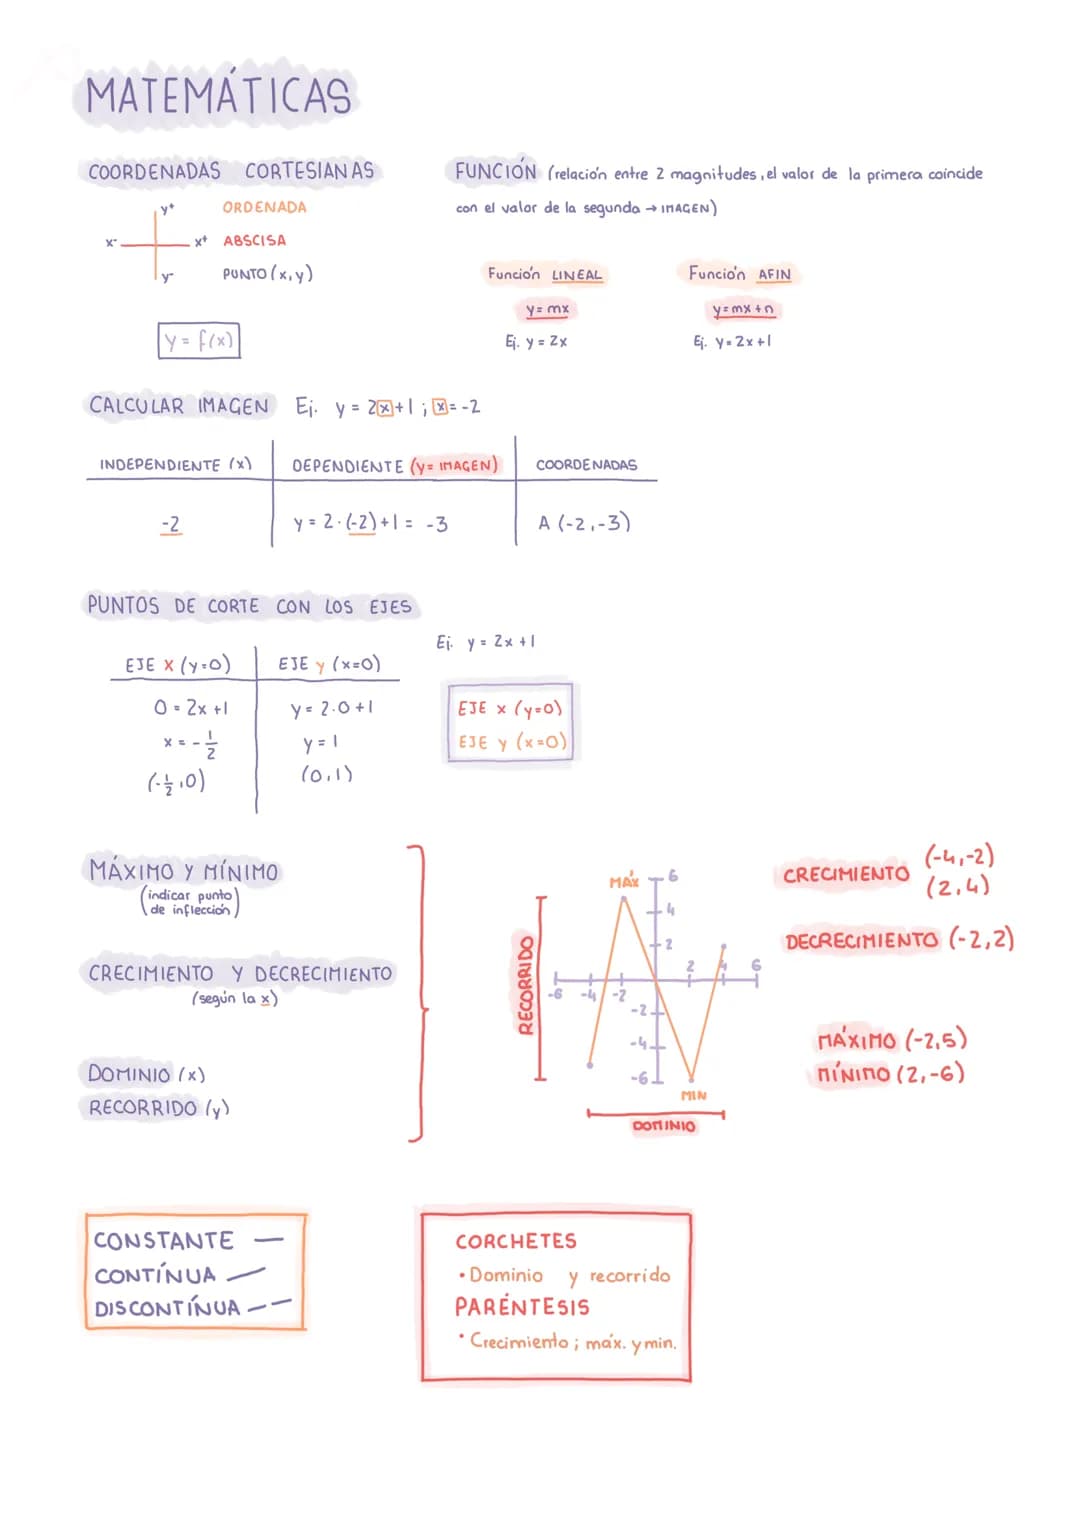 MATEMÁTICAS
COORDENADAS CORTESIANAS
y+
ORDENADA
x-
x+
ABSCISA
y-
PUNTO (x,y)
y = f(x)
FUNCIÓN (relación entre 2 magnitudes, el valor de la primera coincide
con el valor de la segunda → IMAGEN)
Función LINEAL
y= mx
Ej. y = 2x
Función AFIN
y=mx+n
Ej. y=2x+1
CALCULAR IMAGEN Ej. y = 2x+1 ; x= -2
INDEPENDIENTE (x)
DEPENDIENTE (y= IMAGEN)
COORDENADAS
-2
y = 2·(-2)+1 = -3
A (-2,-3)
PUNTOS DE CORTE CON LOS EJES
Ej. y = 2x +1
EJE x (y=0)
EJE y (x=0)
0 = 2x +1
y= 2·0+1
x = -1/2
y = 1
(-1/2,0)
(0,1)
EJE x (y=0)
EJE y (x=0)
MÁXIMO Y MÍNIMO
(indicar punto
de inflección)
CRECIMIENTO Y DECRECIMIENTO
(según la x)
DOMINIO (x)
RECORRIDO (y)
RECORRIDO
MÁX
6
4
2
-6
-4
-2
2
4
6
-2
-4
-6
MIN
DOMINIO
CRECIMIENTO (-4,-2)
(2,4)
DECRECIMIENTO (-2,2)
MÁXIMO (-2,5)
MÍNIMO (2,-6)
CONSTANTE —
CONTÍNUA —
DISCONTÍNUA – –
CORCHETES
• Dominio y recorrido
PARÉNTESIS
• Crecimiento; máx. y min.